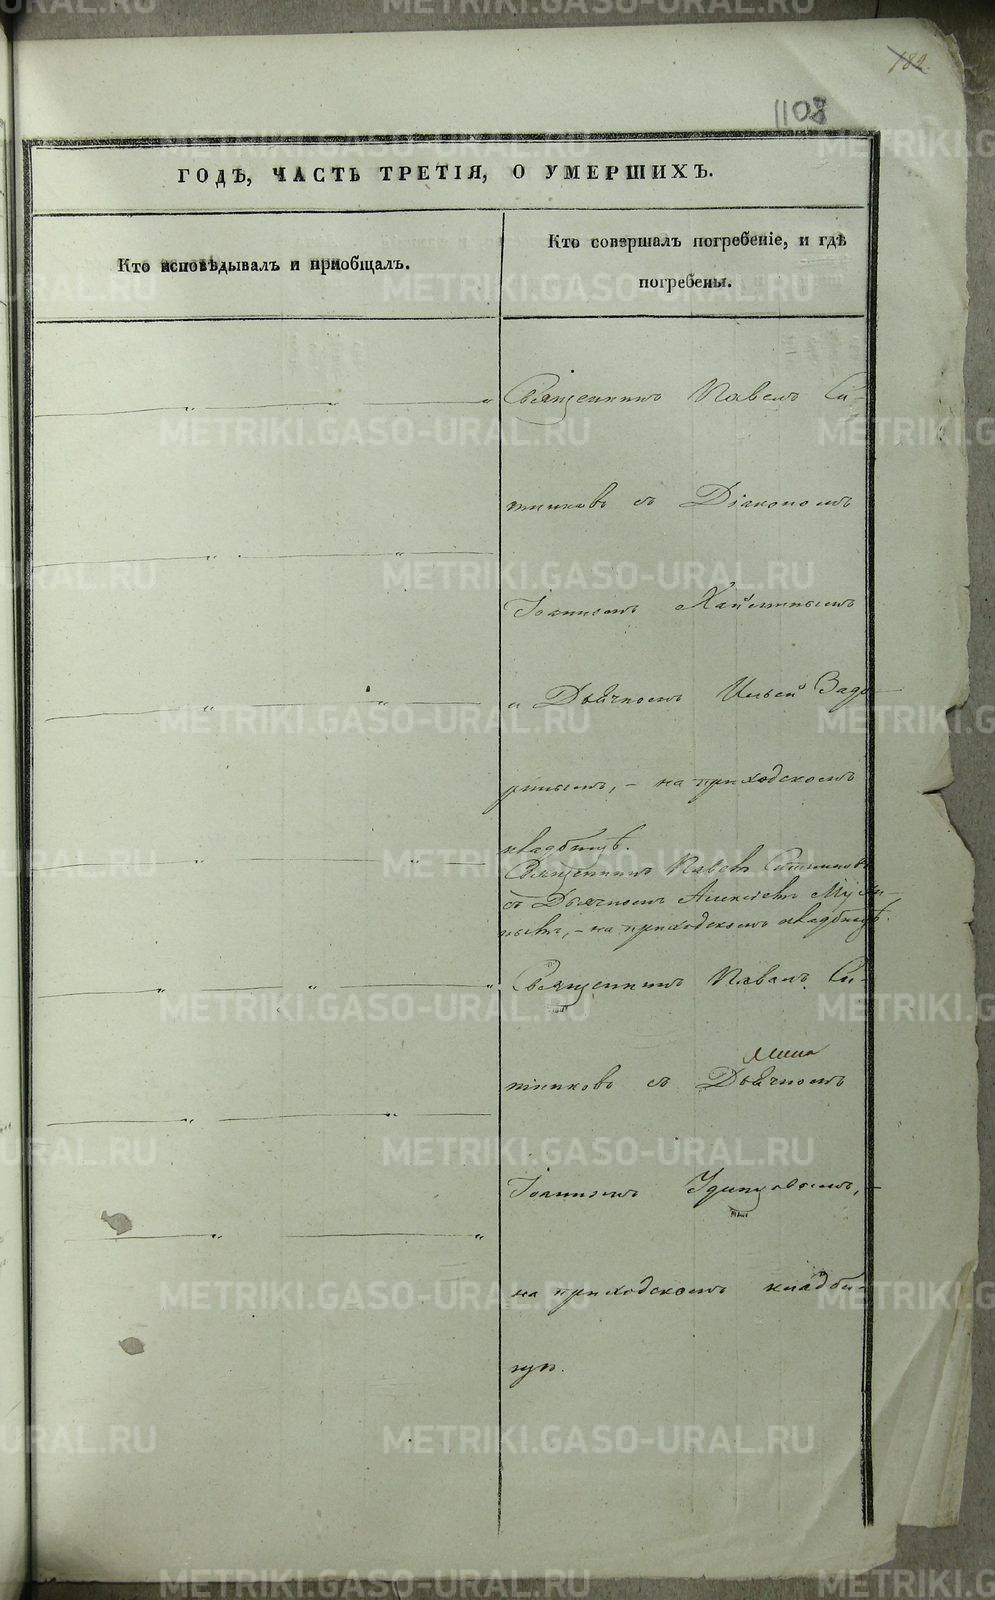 182.
1108
ГОДѢ, ЧАСТЬ ТРЕТІЯ, О УМЕРШИХЪ.
Кто исповѣдывалъ и пріобщалъ.
Кто совершалъ погребеніе, и гдѣ
погребены.
Священникъ Павелъ Си-
тниковъ съ Діакономъ
Іоанномъ
и Дьячкомъ Ильей Задо-
ринымъ, – на приходскомъ
кладбищѣ.
Священникъ Павелъ Ситниковъ
съ Дьячкомъ Алексѣемъ
на приходскомъ кладбищѣ.
Священникъ Павелъ Си-
тниковъ съ Дьячкомъ
Іоанномъ Удинцовымъ, –
на приходскомъ кладби-
щѣ.
METRIKI.GASO-URAL.RU